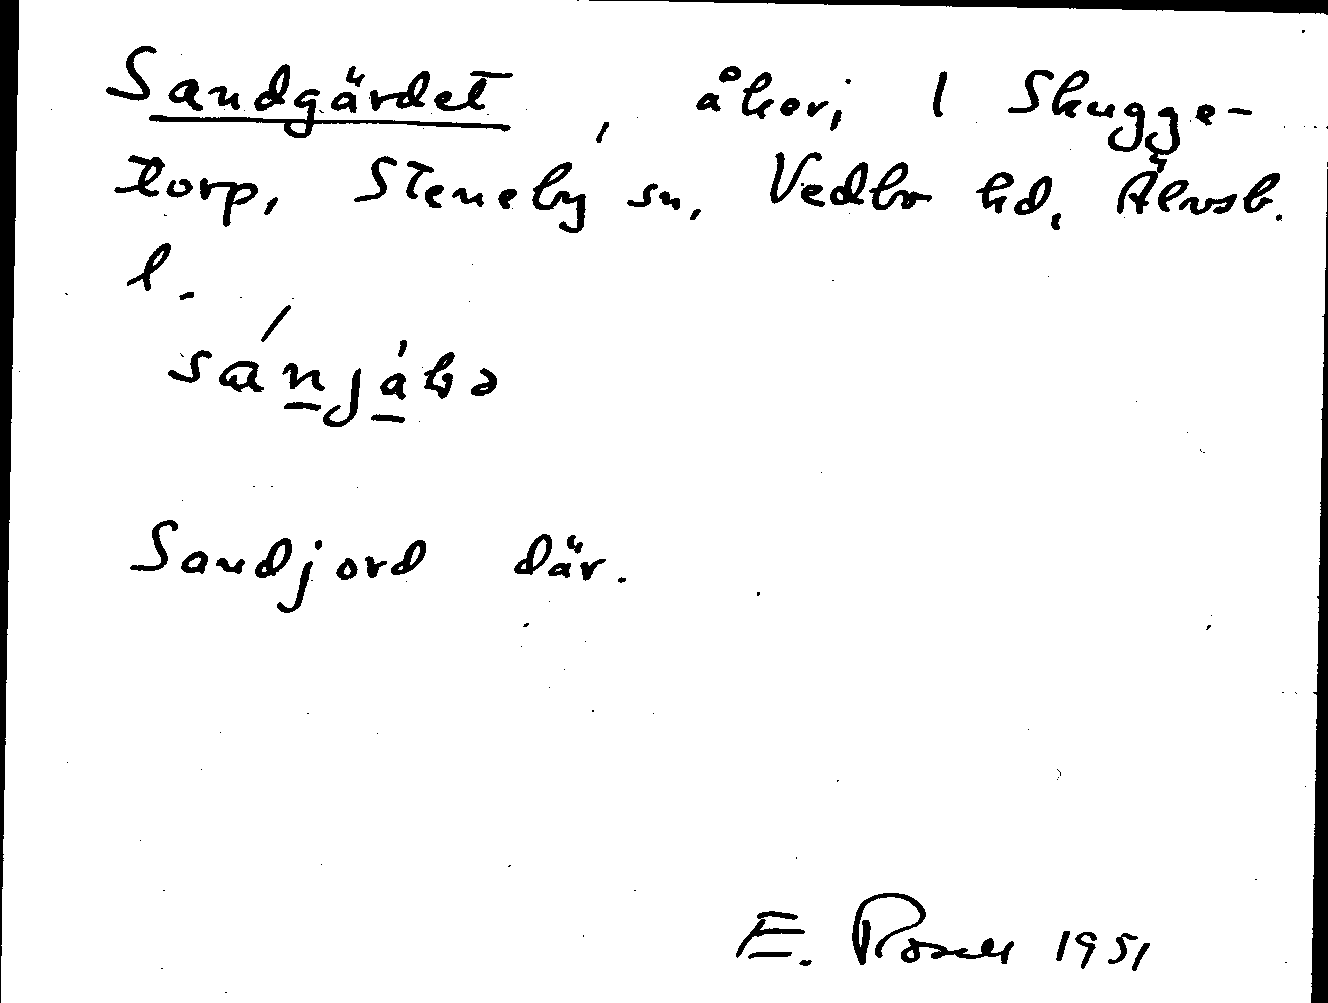 Sandgärdet, åker, 1 Skugge-
torp, Steneby sn, Vedbo hd, Älvsb.
l.
Sandjord där.
E. Rosell 1951